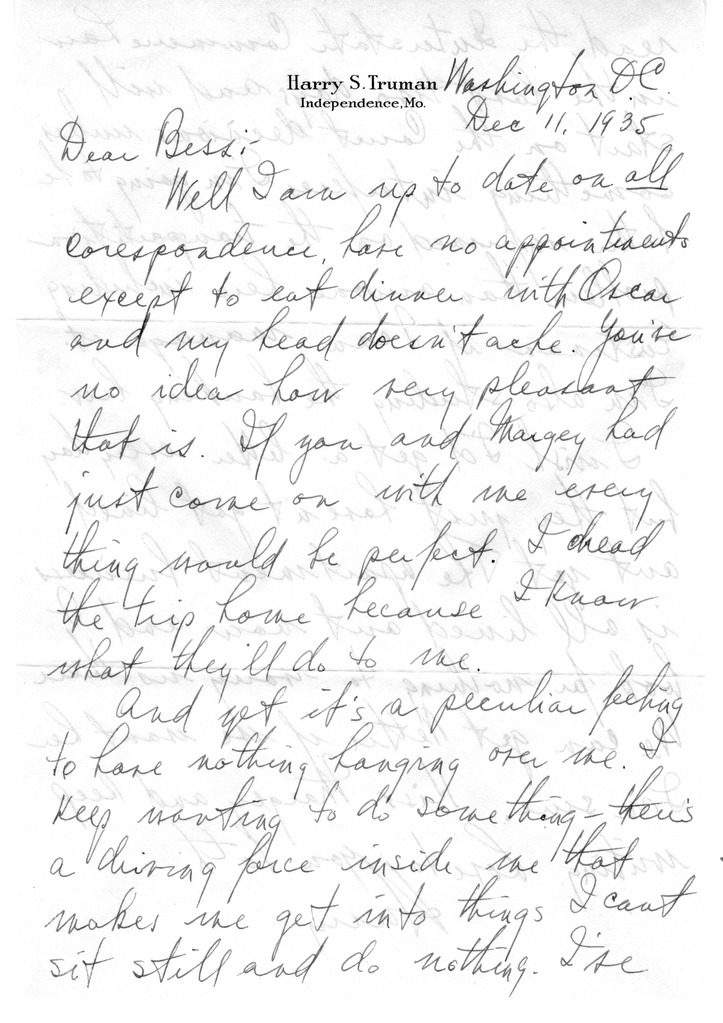 Harry S. Truman Washington DC
Independence, Mo. Dec 11, 1935
Dear Bess:-
Well I am up to date on all
corespondence, have no appointments
except to eat dinner with Oscar
and my head doesn't ache. You've
no idea how very pleasant
that is. If you and Margey had
just come on with me every
thing would be perfect. I dread
the trip home because I know
what they'll do to me.
And yet it's a peculiar feeling
to have nothing hanging over me. I
keep wanting to do something - there's
a driving force inside me that
makes me get into things I cant
sit still and do nothing. I've